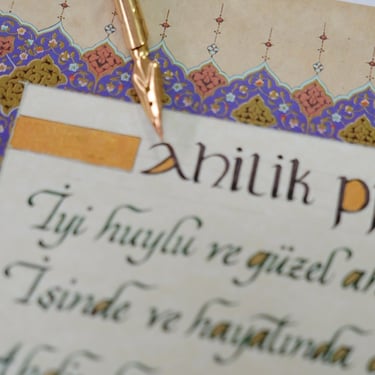 ahilik
İyi huylu ve güzel
İşinde ve hayatında